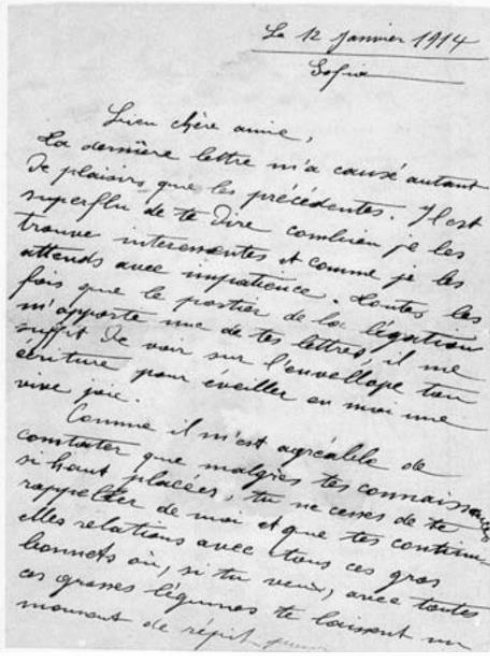 Le 12 janvier 1914
Sofia
Bien chère amie,
Ta dernière lettre m'a causé autant
de plaisirs que les précédentes. Il est
superflu de te dire combien je les
trouve interessantes et comme je les
attends avec impatience. Toutes les
fois que le portier de la légation
m'apporte une de tes lettres, il me
suffit de voir sur l'envellope ton
écriture pour éveiller en moi une
vive joie.
Comme il m'est agréable de
constater que malgrès tes connaissances
si haut placées, tu ne cesses de te
rappeller de moi et que tes continu-
elles relations avec tous ces gros
bonnets où, si tu veux, avec toutes
ces grosses légumes te laissent un
moment de répit